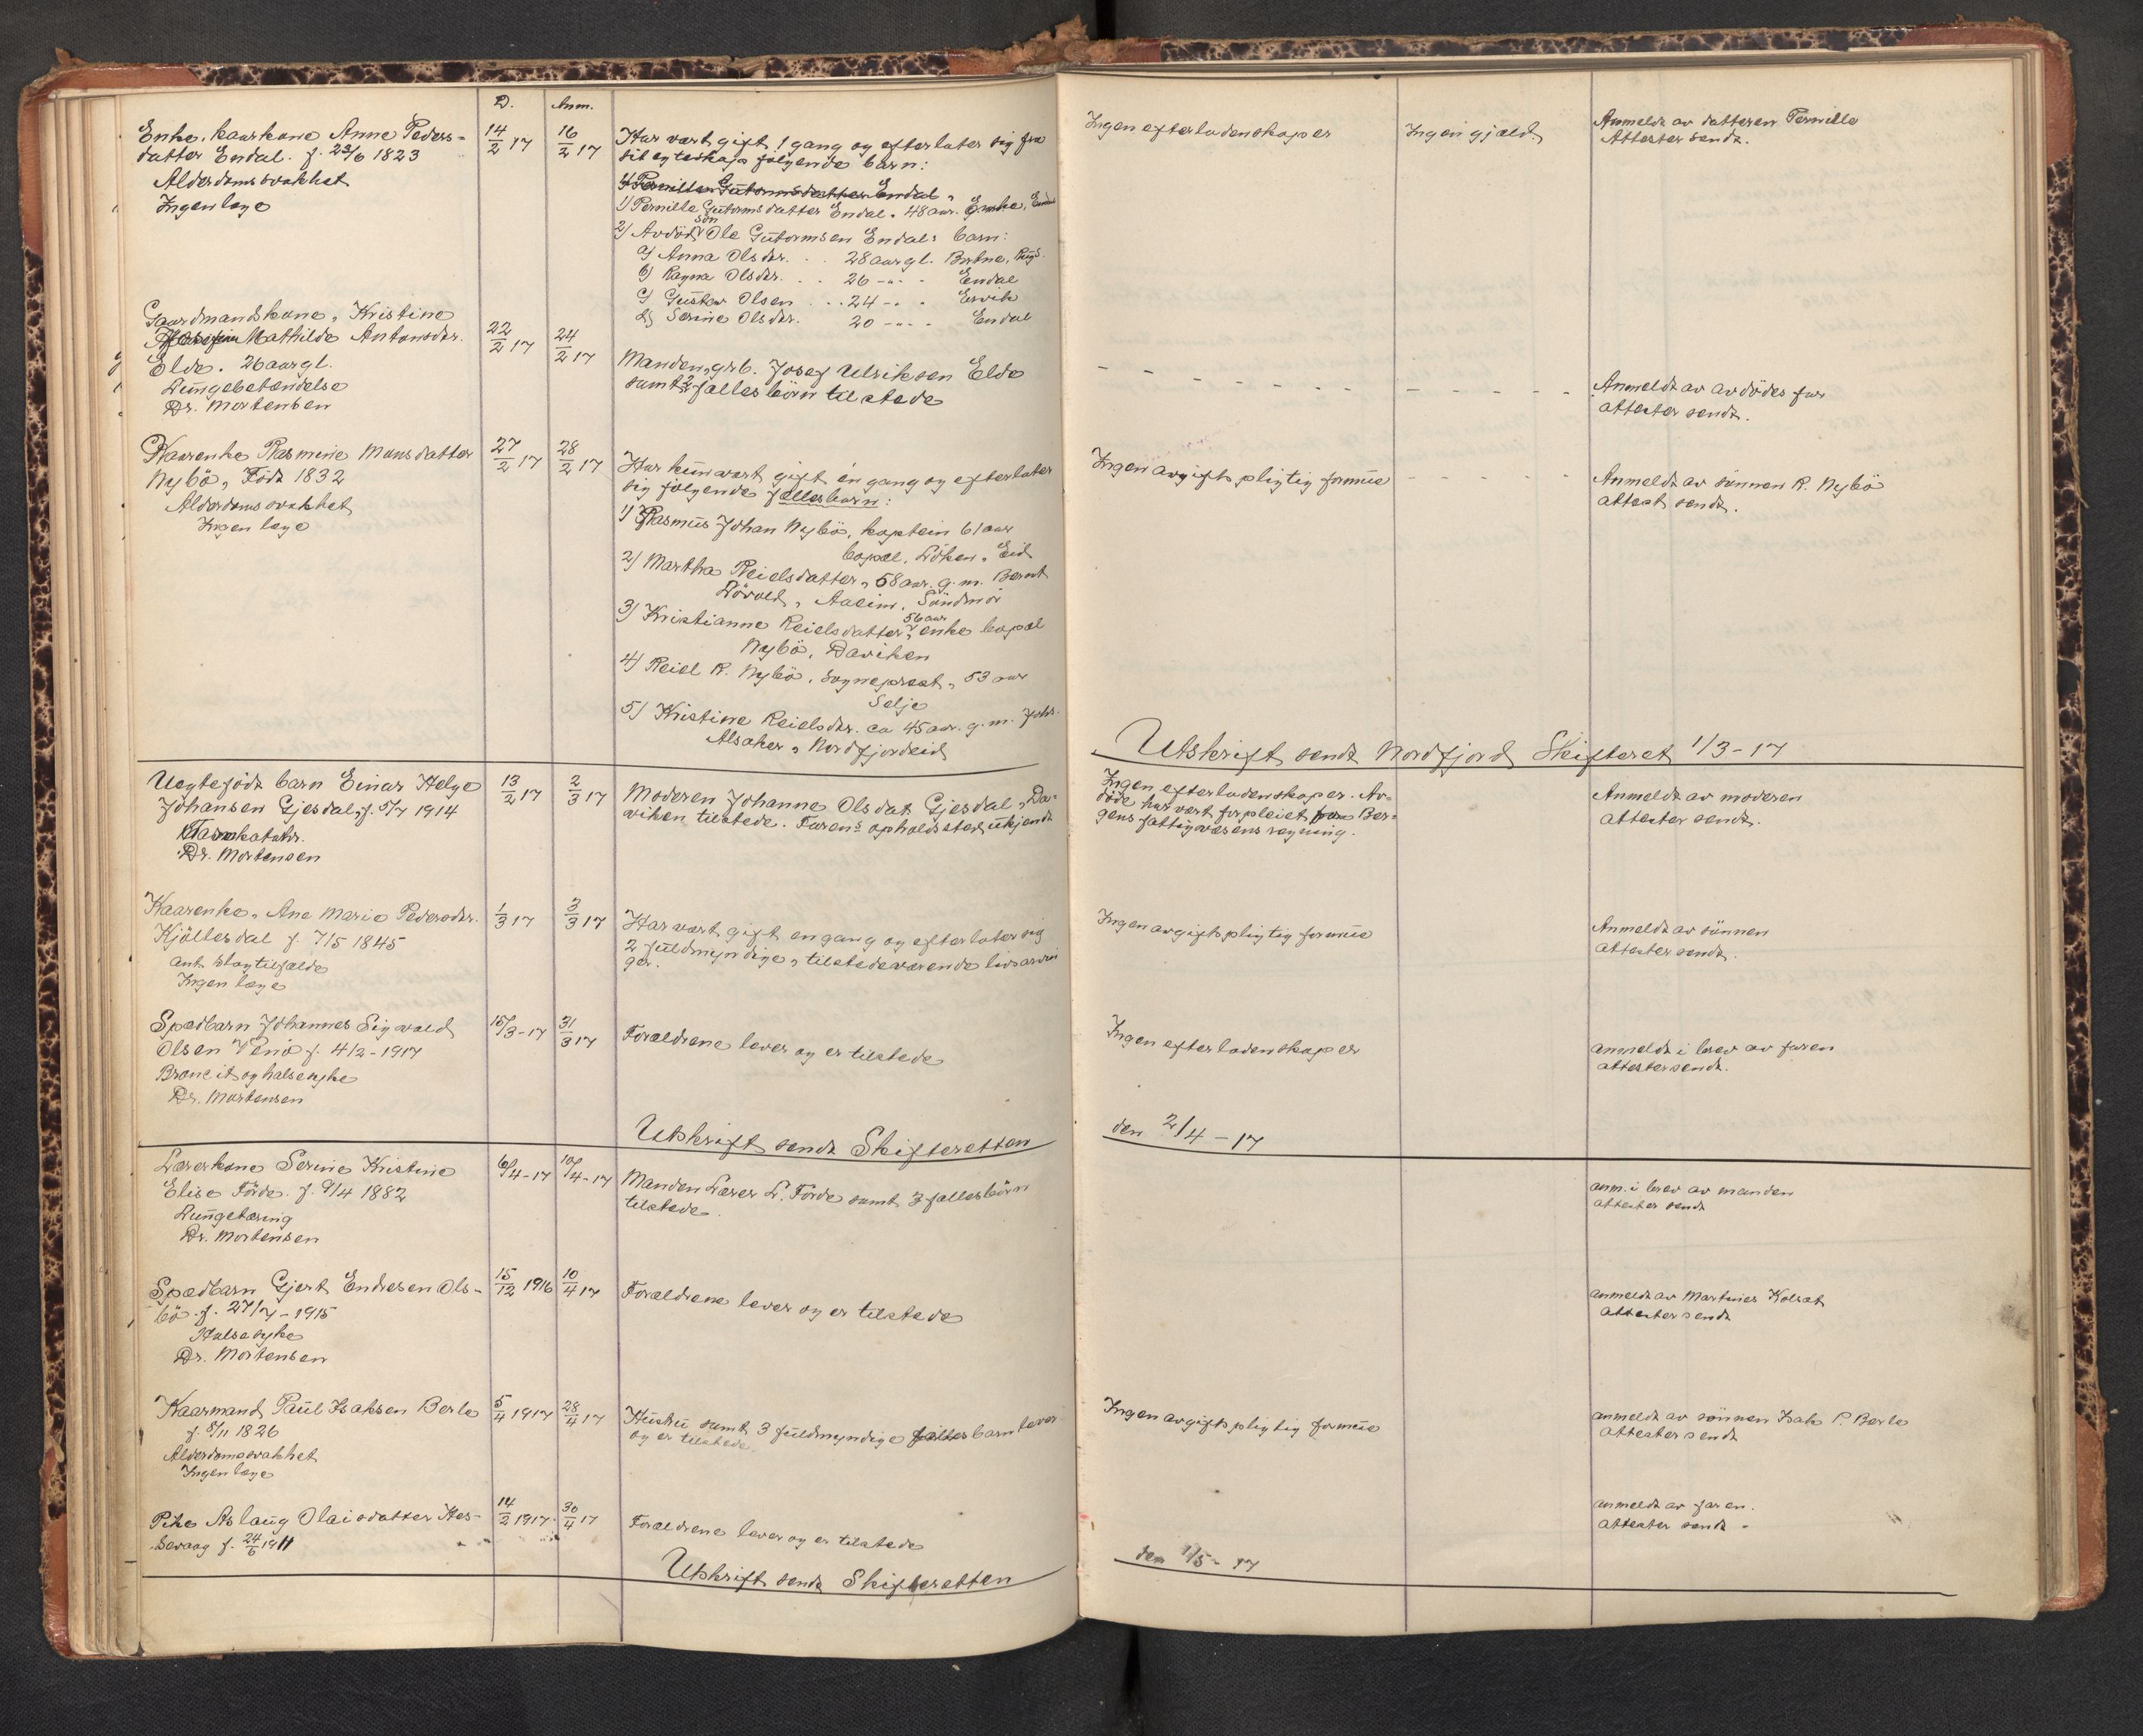 D. Anm.
Enke, kaarkone Anne Peders-
datter Endal. f. 23/6 1823
Alderdomssvakhet
Ingen læge
14/2 17
16/2 17
Har vært gift 1 gang og efterlater sig fra
sit egteskap følgende barn:
1) Pernille Gutormsdatter Endal
1) Pernille Gutormsdatter Endal. 48 aar. Enke, Endal
2) Avdöde sön Ole Gutormsen Endals barn:
a) Anna Olsdr. . . 28 aar gl. Bortne,
b) Ragna Olsdr. . . 26 -"- Endal
c) Gustav Olsen . . 24 -"- Ervik
d) Serine Olsdr. 20 -"- Endal
Ingen efterladenskaper
Ingen gjæld.
Anmeldt av datteren Pernille
Attester sendt.
Gaardmandskone, Kristine
Mathilde Antonsdr.
Elde. 26 aar gl.
Lungebetændelse
Dr. Mortensen
22/2 17
24/2 17
Manden, grb. Josef Ulriksen Elde
samt 2 fælles börn tilstede
Anmeldt av avdödes far
attester sendt.
Kaarenke Rasmine Monsdatter
Nybö, Födt 1832
Alderdomssvakhet
Ingen læge
27/2 17
28/2 17
Har kun vært gift én gang og efterlater
sig følgende fællesbarn:
1) Rasmus Johan Nybö, kaptein 61 aar
bopæl, Löken, Eid
2) Martha Reielsdatter, 58 aar. g.m. Bernt
Lövold, Aaeim, Söndmör
3) Kristianne Reielsdatter, 56 aar enke bopæl
Nybö, Daviken
4) Reiel R. Nybö, Sogneprest, 53 aar
Selje
5) Kristine Reielsdr. ca 45 aar. g.m. Johs.
Alsaker, Nordfjordeid
Ingen avgiftspligtig formue
Anmeldt av sönnen R. Nybö
attest sendt.
Utskrift sendt Nordfjord Skifteret 1/3 - 17
Uegtefödt barn Einar Helge
Johansen Gjesdal, f. 5/7 1914
Tarmkatahr.
Dr. Mortensen
13/2 17
2/3 17
Moderen Johanne Olsdat Gjesdal, Da-
viken tilstede. Farens opholdssted ukjendt
Ingen efterladenskaper. Av-
döde har vært forpleiet for Ber-
gens fattigvæsens regning.
Anmeldt av moderen
attester sendt.
Kaarenke, Ane Marie Pedersdr.
Kjöllesdal f. 7/5 1845
ant. slagtilfælde
Ingen læge
1/3 17
3/3 17
Har vært gift en gang og efterlater sig
2 fuldmyndige, tilstedeværende livsarvin
ger.
Ingen avgiftspligtig formue
Anmeldt av sönnen
attester sendt.
Spædbarn Johannes Sigvald
Olsen f. 4/2 - 1917
Broncit og halsesyke
Dr. Mortensen
15/3 - 17
31/3 17
Forældrene lever og er tilstede
Ingen efterladenskaper
anmeldt i brev av faren
attester sendt.
Utskrift sendt Skifteretten
den 2/4 - 17
Lærerkone Serine Kristine
Elise Förde. f. 9/4 1882
Lungetæring
Dr. Mortensen
6/4 - 17
10/4 - 17
Manden Lærer L. Förde samt 3 fællesbörn
tilstede.
anm. i brev av manden
attester sendt
Spædbarn Gjert Endresen Ols-
bö f. 27/7 - 1915
Halsesyke
Dr. Mortensen
15/12 1916
10/4 17
Forældrene lever og er tilstede
anmeldt av Martinus Kolset
attester sendt
Kaarmand Paul Isaksen Berle
f. 8/11 1826
Alderdomssvakhet
Ingen læge
5/4 1917
28/4 17
Hustru samt 3 fuldmyndige fælles barn lever
og er tilstede.
Ingen avgiftspligtig formue
anmeldt av sönnen Isak P. Berle
attester sendt
Pike Aslaug Olaisdatter Hes-
bevaag f. 24/6 1911
14/2 1917
30/4 17
Forældrene lever og er tilstede
anmeldt av faren.
attester sendt -
Utskrift sendt Skifteretten
den 1/5 - 17